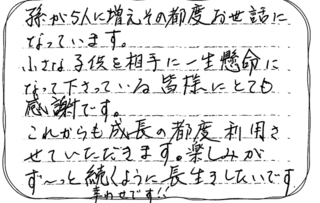 孫が5人に増えその都度お世話に
なっています。
小さな子供を相手に一生懸命に
なって下さっている皆様にとても
感謝です。
これからも成長の都度利用さ
せていただきます。楽しみが
ず〜っと続くように長生きしたいです
幸わせです!!